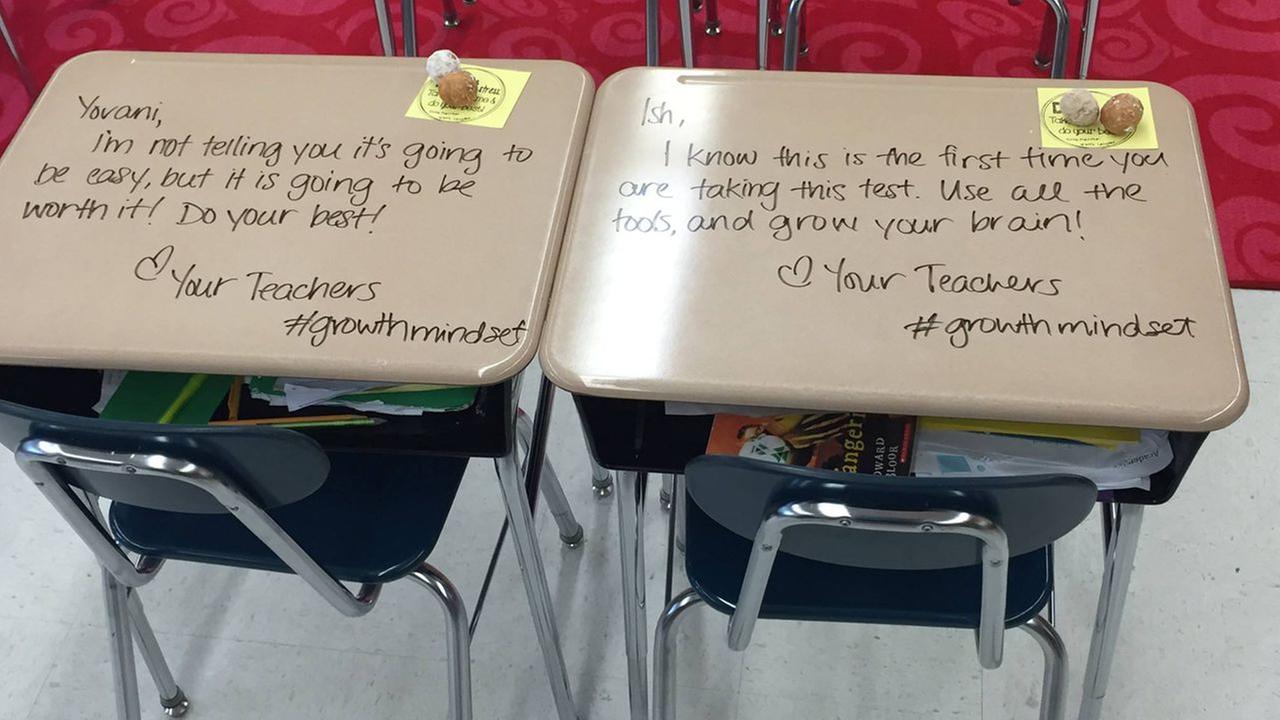 Yovani,
I'm not telling you it's going to
be easy, but it is going to be
worth it! Do your best!
♡ Your Teachers
#growthmindset
stress
do your best!
Ish,
I know this is the first time you
are taking this test. Use all the
tools, and grow your brain!
♡ Your Teachers
#growthmindset
do your
OWARD
LOOR
Academic